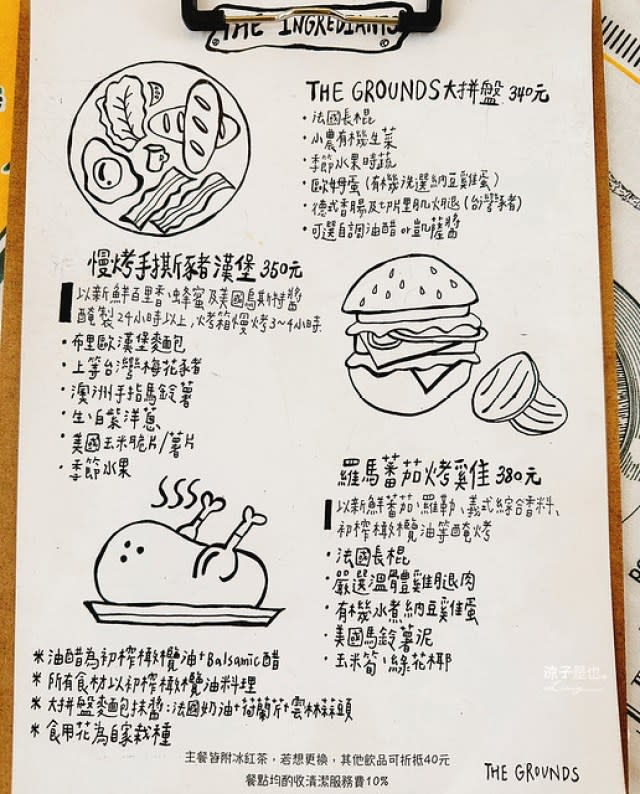 THE INGREDIANTS
THE GROUNDS大拼盤 340元
・法國長棍
・小農有機生菜
・季節水果時蔬
・歐姆蛋(有機洗選納豆雞蛋)
・德式香腸及切片里肌火腿(台灣豬)
・可選自調油醋 or 凱薩醬
慢烤手撕豬漢堡 350元
以新鮮百里香、蜂蜜及美國烏斯特醬
醃製24小時以上,烤箱慢烤3~4小時.
・布里歐漢堡麵包
・上等台灣梅花豬
・澳洲手指馬鈴薯
・生、白紫洋蔥
・美國玉米脆片/薯片
・季節水果
羅馬蕃茄烤雞佳 380元
以新鮮蕃茄、羅勒、義式綜合香料、
初榨橄欖油等醃烤
・法國長棍
・嚴選溫體雞腿肉
・有機水煮納豆雞蛋
・美國馬鈴薯泥
・玉米筍、綠花椰
*油醋為初榨橄欖油+Balsamic醋
*所有食材以初榨橄欖油料理
*大拼盤麵包抹醬:法國奶油+荷蘭芹+雲林蒜頭
*食用花為自家栽種
涼子是也。
主餐皆附冰紅茶,若想更換,其他飲品可折抵40元
餐點均酌收清潔服務費10%
THE GROUNDS